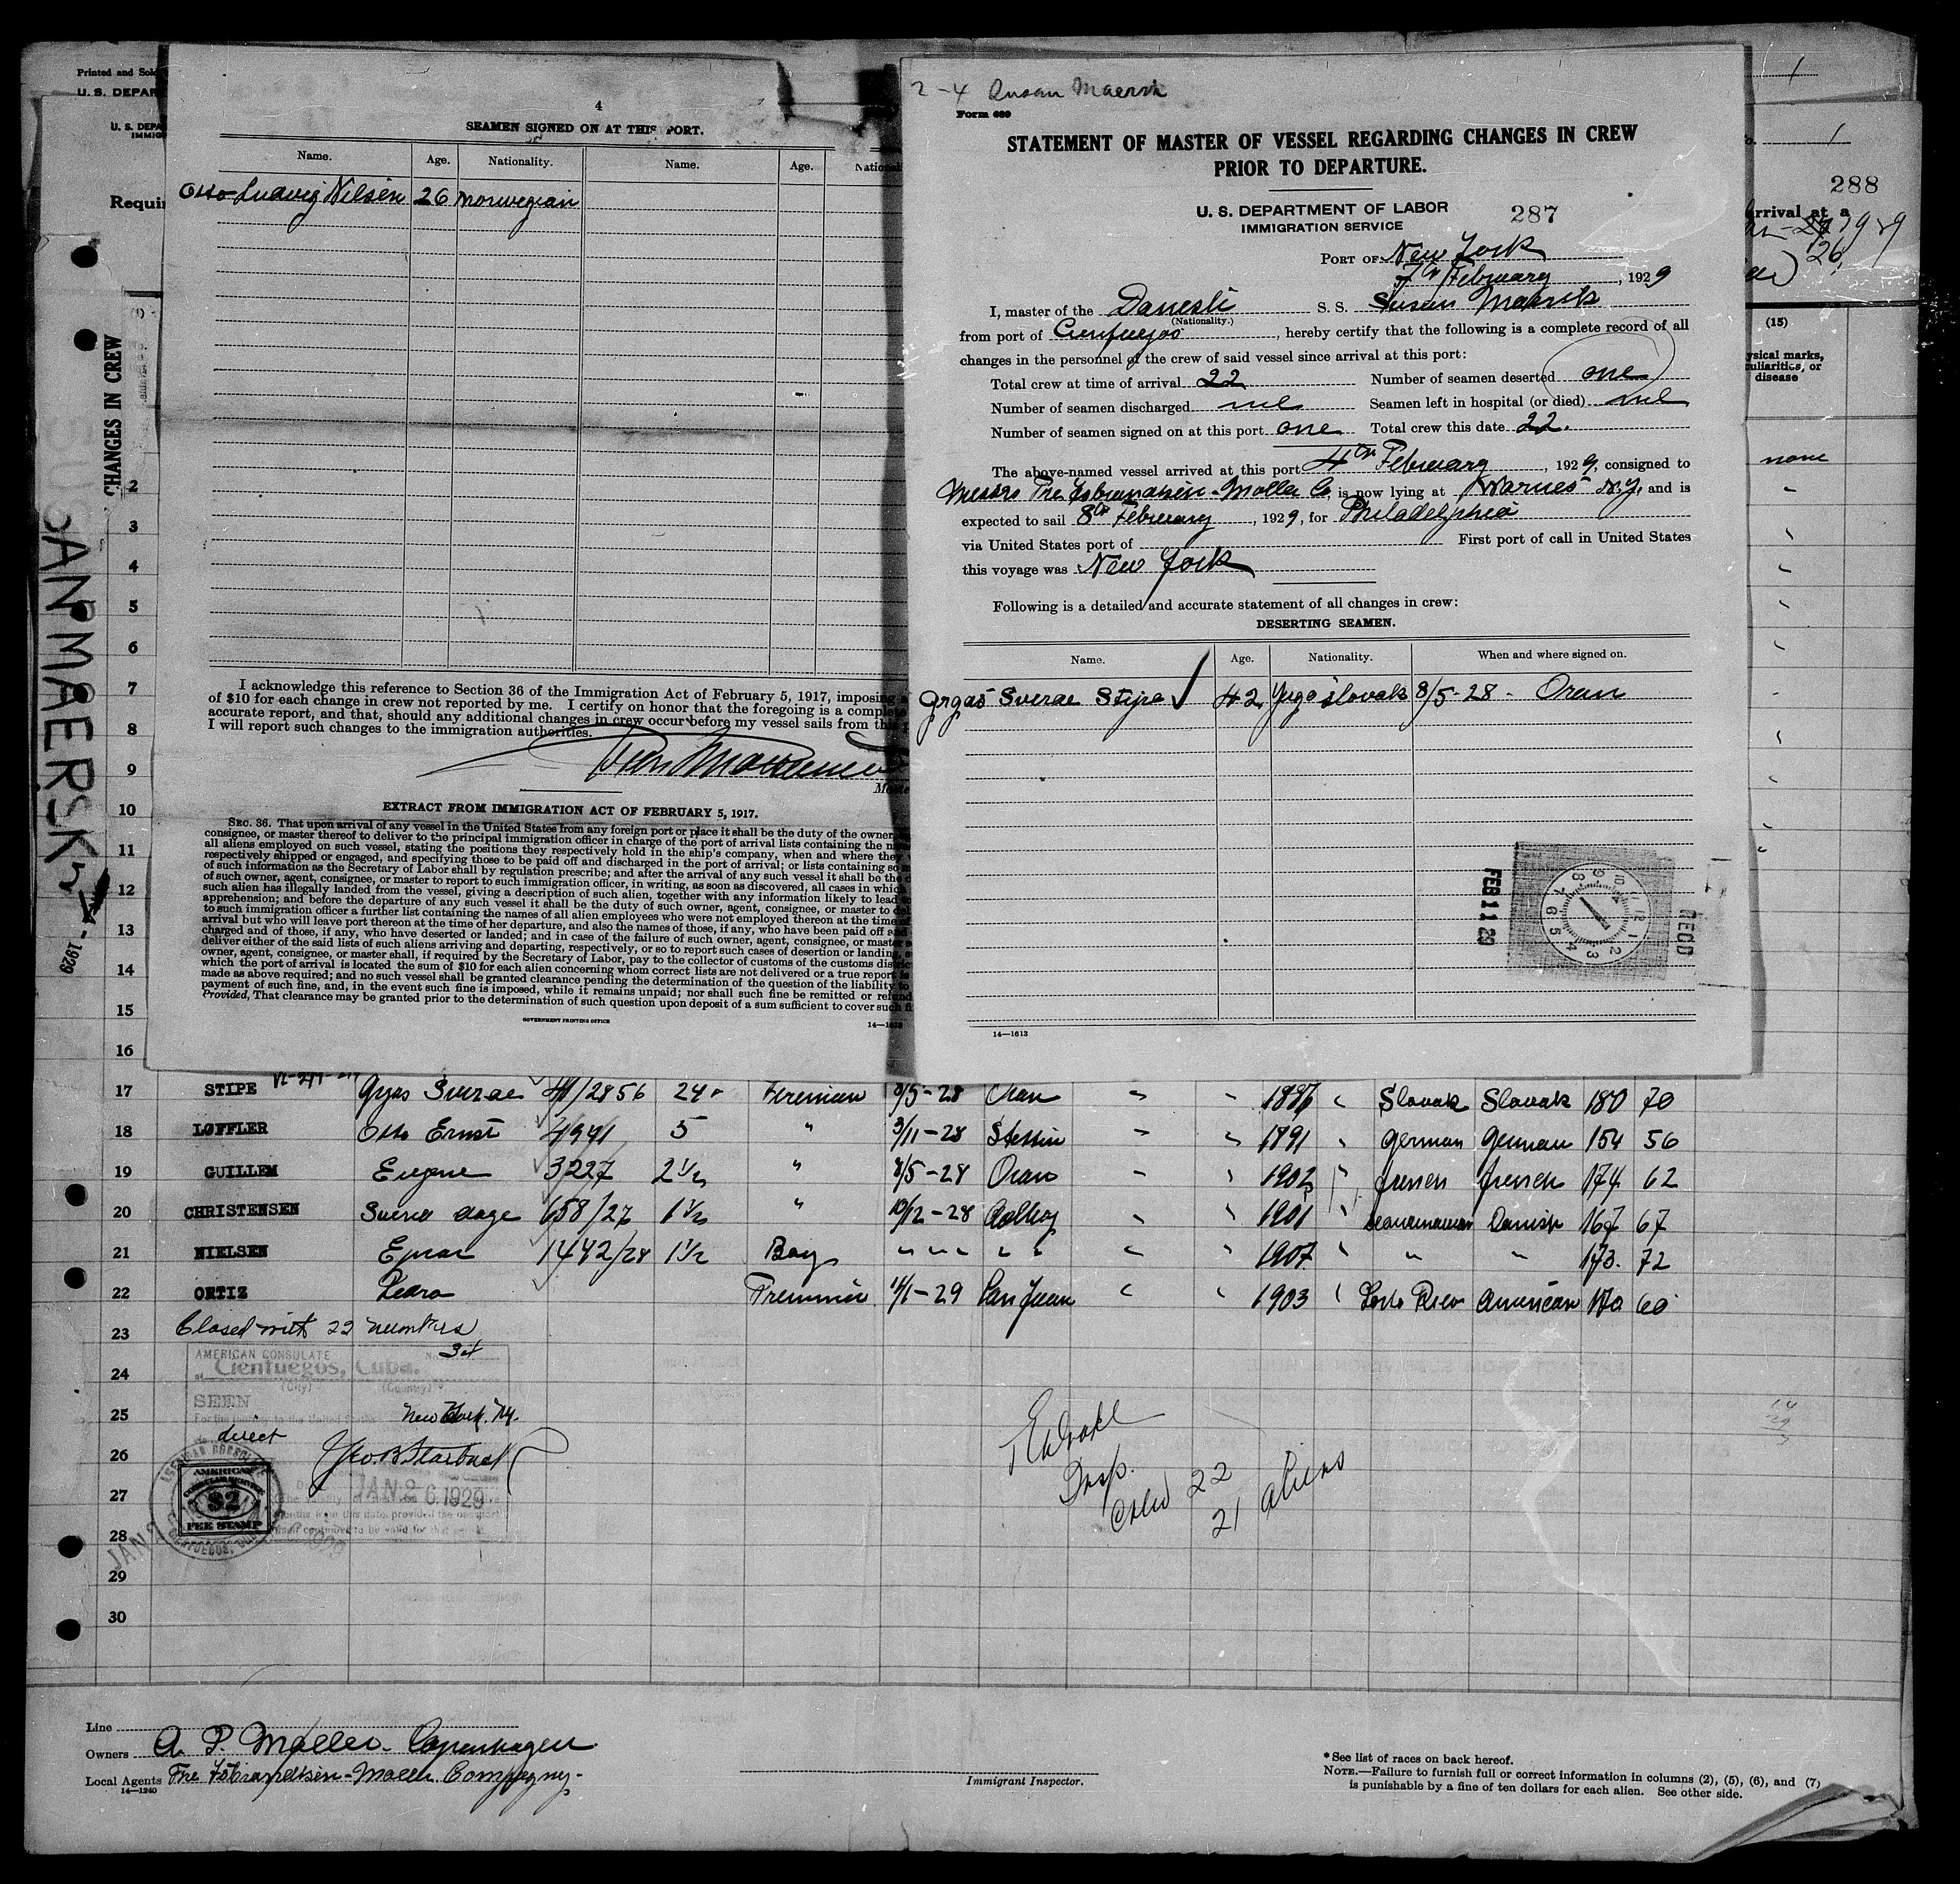 Printed and Sol
U. S. DEPAR
U. S. DEPA
IMMIG
Requir
CHANGES IN CREW
SUSAN MAERSK
1929
4
SEAMEN SIGNED ON AT THIS PORT.
Name. Age. Nationality. Name. Age. National
Otto Ludvig Nilsen 26 norwegian
I acknowledge this reference to Section 36 of the Immigration Act of February 5, 1917, imposing a
of $10 for each change in crew not reported by me. I certify on honor that the foregoing is a complete
accurate report, and that, should any additional changes in crew occur before my vessel sails from this
I will report such changes to the immigration authorities.
Maste
EXTRACT FROM IMMIGRATION ACT OF FEBRUARY 5, 1917.
SEC. 36. That upon arrival of any vessel in the United States from any foreign port or place it shall be the duty of the owner,
consignee, or master thereof to deliver to the principal immigration officer in charge of the port of arrival lists containing the na
all aliens employed on such vessel, stating the positions they respectively hold in the ship's company, when and where they
respectively shipped or engaged, and specifying those to be paid off and discharged in the port of arrival; or lists containing so
of such information as the Secretary of Labor shall by regulation prescribe; and after the arrival of any such vessel it shall be the d
of such owner, agent, consignee, or master to report to such immigration officer, in writing, as soon as discovered, all cases in which
such alien has illegally landed from the vessel, giving a description of such alien, together with any information likely to lead
apprehension; and before the departure of any such vessel it shall be the duty of such owner, agent, consignee, or master to de
to such immigration officer a further list containing the names of all alien employees who were not employed thereon at the time of
arrival but who will leave port thereon at the time of her departure, and also the names of those, if any, who have been paid off and
charged and of those, if any, who have deserted or landed; and in case of the failure of such owner, agent, consignee, or master
deliver either of the said lists of such aliens arriving and departing, respectively, or so to report such cases of desertion or landing,
owner, agent, consignee, or master shall, if required by the Secretary of Labor, pay to the collector of customs of the customs distric
which the port of arrival is located the sum of $10 for each alien concerning whom correct lists are not delivered or a true report is
made as above required; and no such vessel shall be granted clearance pending the determination of the question of the liability to
payment of such fine, and, in the event such fine is imposed, while it remains unpaid; nor shall such fine be remitted or refund
Provided, That clearance may be granted prior to the determination of such question upon deposit of a sum sufficient to cover such fi
GOVERNMENT PRINTING OFFICE 14—1613
2-4 Susan Maersk
Form 689
STATEMENT OF MASTER OF VESSEL REGARDING CHANGES IN CREW
PRIOR TO DEPARTURE.
U. S. DEPARTMENT OF LABOR
IMMIGRATION SERVICE
287
PORT OF New York
7th February, 1929
I, master of the Danish S. S. Susan Maersk
(Nationality.)
from port of Cienfuegos, hereby certify that the following is a complete record of all
changes in the personnel of the crew of said vessel since arrival at this port:
Total crew at time of arrival 22 Number of seamen deserted one
Number of seamen discharged nil Seamen left in hospital (or died) nil
Number of seamen signed on at this port one Total crew this date 22.
The above-named vessel arrived at this port 4th February, 1929, consigned to
Messrs The Isbrandtsen-Moller Co, is now lying at Warnes N.J, and is
expected to sail 8th February, 1929, for Philadelphia
via United States port of First port of call in United States
this voyage was New York
Following is a detailed and accurate statement of all changes in crew:
DESERTING SEAMEN.
Name. Age. Nationality. When and where signed on.
Grgas Sverae Stipe ✓ 42 Yugoslovak 8/5-28 - Oran
FEB 11 29
RECD
14—1613
1
1
288
arrival at a
1929
26
(15)
ysical marks,
culiarities, or
disease
none
2
3
4
5
6
7
8
9
10
11
12
13
14
15
16
17 STIPE Grgas Sverae 41/2856 24 Fireman 8/5-28 Oran " " 1886 " Slovak Slovak 180 70
18 LØFFLER Otto Ernst 4941 5 " 3/11-28 Stettin " " 1891 " German German 154 56
19 GUILLEM Eugene 3227 2 1/2 " 8/5-28 Oran " " 1902 " french french 174 62
20 CHRISTENSEN Svend Aage 658/27 1 1/2 " 10/12-28 Aalborg " " 1901 " Scandinavian Danish 167 67
21 NIELSEN Ejnar 1442/28 1 1/2 Boy " " " " " " " 1907. " " " 173. 72
22 ORTIZ Pedro Fireman 14/1-29 San Juan " " 1903 " Porto Rico American 170 60
23 Closed with 22 members
24
25
26
27
28
29
30
AMERICAN CONSULATE No. 34
at Cienfuegos, Cuba.
(City) (Country)
SEEN
For the journey to the United States
New York. N.Y.
direct
Geo. B. Starbuck
JAN 26 1929
months from this date, provided the passport
continued to be valid for that period
AMERICAN
CONSULAR SERVICE
$2
FEE STAMP
Insp.
Crew 22
21 aliens
Line
Owners A. P. Møller. Copenhagen.
Local Agents The Isbrandtsen-Moller Compagny.
14—1240
Immigrant Inspector.
*See list of races on back hereof.
NOTE.—Failure to furnish full or correct information in columns (2), (5), (6), and (7)
is punishable by a fine of ten dollars for each alien. See other side.